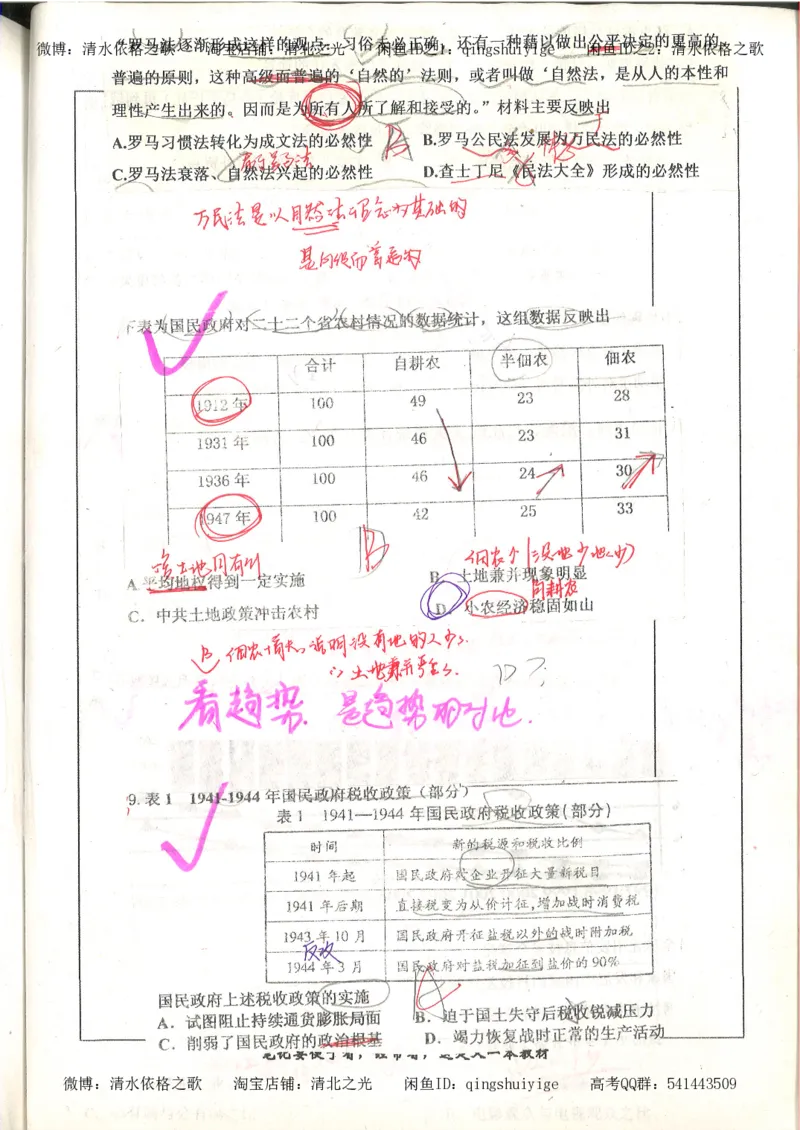 “罗马法逐渐形成这样的观点：习俗未必正确，还有一种藉以做出公平决定的更高的
微博：清水依格之歌 淘宝店铺：清北之光 闲鱼ID之1：qingshuiyige 闲鱼ID之2：清水依格之歌
普遍的原则，这种高级而普遍的‘自然的’法则，或者叫做‘自然法，是从人的本性和
理性产生出来的。因而是为所有人所了解和接受的。”材料主要反映出
A.罗马习惯法转化为成文法的必然性 B
B.罗马公民法发展为万民法的必然性
C.罗马法衰落、自然法兴起的必然性
D.查士丁尼《民法大全》形成的必然性
万民法是以自然法理念为基础的
是高级而普遍的
下表为国民政府对二十二个省农村情况的数据统计，这组数据反映出
合计 自耕农 半佃农 佃农
1912年 100 49 23 28
1931年 100 46 23 31
1936年 100 46 24 30
1947年 100 42 25 33
B
A 平均地权得到一定实施
B．土地兼并现象明显
自耕农
C．中共土地政策冲击农村
D．小农经济稳固如山
B
D？
看趋势．是趋势的对比．
9. 表1 1941-1944年国民政府税收政策（部分）
表1 1941—1944年国民政府税收政策(部分)
时间 新的税源和税收比例
1941年起 国民政府对企业开征大量新税目
1941年后期 直接税变为从价计征,增加战时消费税
1943年10月 国民政府开征盐税以外的战时附加税
反攻
1944年3月 国民政府对盐税加征到盐价的90%
国民政府上述税收政策的实施 A
A．试图阻止持续通货膨胀局面
B．迫于国土失守后税收锐减压力
C．削弱了国民政府的政治根基
D．竭力恢复战时正常的生产活动
微博：清水依格之歌 淘宝店铺：清北之光 闲鱼ID：qingshuiyige 高考QQ群：541443509